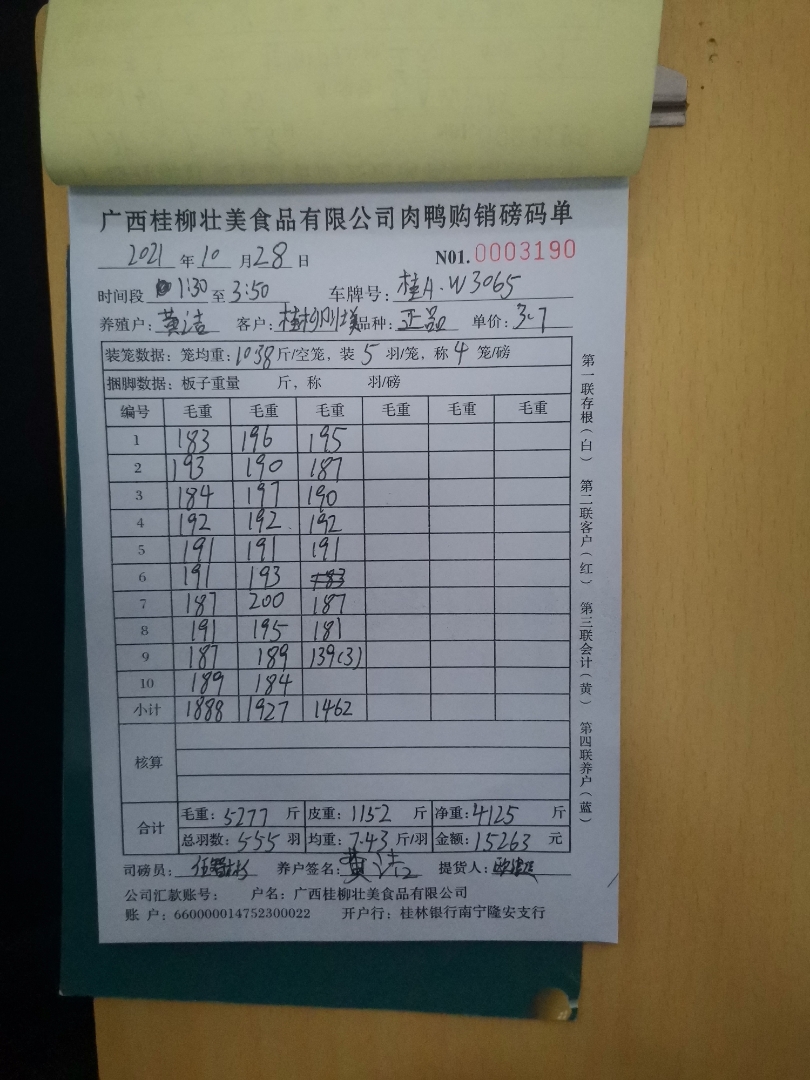 广西桂柳壮美食品有限公司肉鸭购销磅码单
2021 年 10 月 28 日 N01. 0003190
时间段 1:30 至 3:50 车牌号: 桂A·W3065
养殖户: 黄洁 客户: 桂柳 品种: 正品 单价: 3.7
装笼数据: 笼均重: 10.38 斤/空笼, 装 5 羽/笼, 称 4 笼/磅
捆脚数据: 板子重量 斤, 称 羽/磅
编号 毛重 毛重 毛重 毛重 毛重 毛重
1 183 196 195
2 193 190 187
3 184 197 190
4 192 192 192
5 191 191 191
6 191 193
7 187 200 187
8 191 195 181
9 187 189 139(3)
10 189 184
小计 1888 1927 1462
核算
合计
毛重: 5277 斤 皮重: 1152 斤 净重: 4125 斤
总羽数: 555 羽 均重: 7.43 斤/羽 金额: 15263 元
司磅员: 养户签名: 黄洁 提货人:
公司汇款账号: 户名: 广西桂柳壮美食品有限公司
账 户: 660000014752300022 开户行: 桂林银行南宁隆安支行
第一联存根(白) 第二联客户(红) 第三联会计(黄) 第四联养户(蓝)